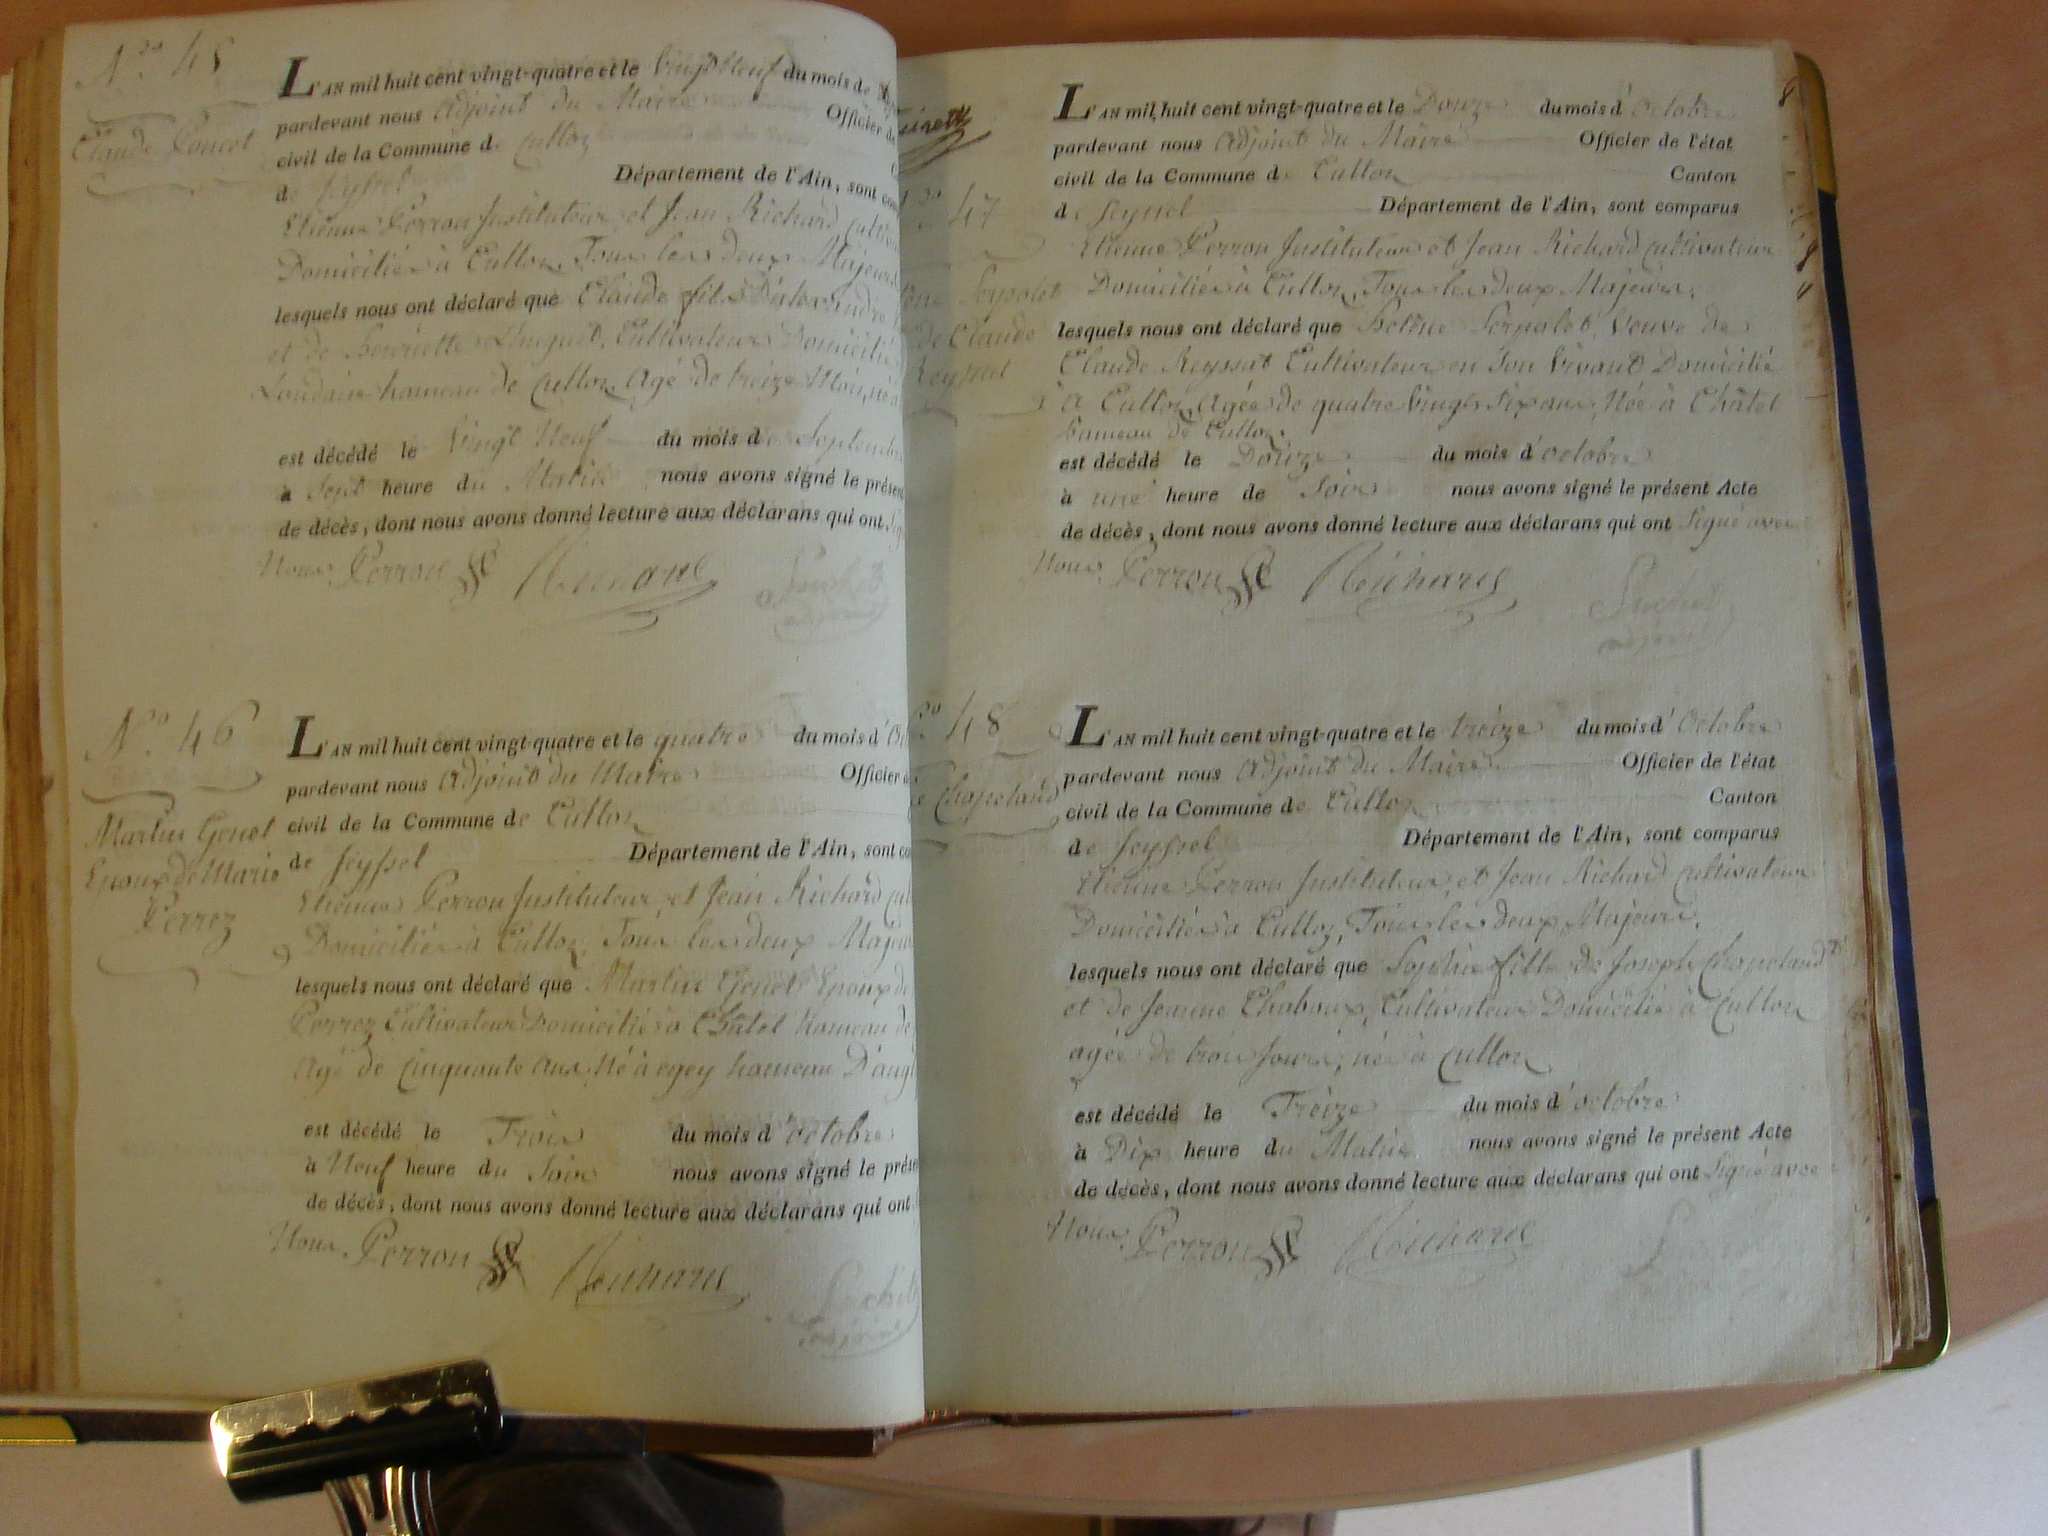 N.ro 45
Claude Poncet
L'AN mil huit cent vingt-quatre et le Vingt Neuf du mois de
pardevant nous Adjoint du Maire Officier de
civil de la Commune de Culloz
de Seyssel Département de l'Ain, sont com
Etienne Perron Instituteur et Jean Richard cultiva
Domiciliés à Culloz, Tous les deux Majeurs
lesquels nous ont déclaré que Claude fils D'alexandre
et de Henriette Cultivateur Domicilié
hameau de Culloz, Agé de treize Mois, né à
est décédé le Vingt Neuf du mois de Septembre
à Sept heure du Matin nous avons signé le présen
de décès, dont nous avons donné lecture aux déclarans qui ont Sig
Nous. Perron Richard
adjoint
N.ro 46
Martin Genet
Epoux de Marie
Perrez
L'AN mil huit cent vingt-quatre et le quatre du mois d'Oc
pardevant nous Adjoint du Maire Officier de
civil de la Commune de Culloz
de Seyssel Département de l'Ain, sont co
Etienne Perron Instituteur, et Jean Richard cul
Domiciliés à Culloz, Tous les deux Majeur
lesquels nous ont déclaré que Martin Genet Epoux de
Perrez Cultivateur Domicilié à Châtel hameau de
Agé de cinquante ans, Né à egey hameau D'angl
est décédé le Trois du mois d'octobre
à Neuf heure du Soir nous avons signé le prése
de décès, dont nous avons donné lecture aux déclarans qui ont
Nous. Perron Richard
adjoint
47
Serpolet
de Claude
Reyssat
L'AN mil huit cent vingt-quatre et le Douze du mois d'Octobre
pardevant nous Adjoint du Maire Officier de l'état
civil de la Commune de Culloz Canton
de Seyssel Département de l'Ain, sont comparus
Etienne Perron Instituteur et Jean Richard cultivateur
Domiciliés à Culloz, Tous les deux Majeurs.
lesquels nous ont déclaré que Helène Serpolet, Veuve de
Claude Reyssat Cultivateur en Son Vivant Domicilié
à Culloz, Agée de quatre Vingt Six ans, Née à Châtel
hameau de Culloz.
est décédé le Douze du mois d'octobre
à une heure de Soir nous avons signé le présent Acte
de décès, dont nous avons donné lecture aux déclarans qui ont Signé avec
Nous. Perron Richard
adjoint
48
Chapeland
L'AN mil huit cent vingt-quatre et le treize du mois d'Octobre
pardevant nous Adjoint du Maire Officier de l'état
civil de la Commune de Culloz Canton
de Seyssel Département de l'Ain, sont comparus
Etienne Perron Instituteur, et Jean Richard cultivateur
Domiciliés à Culloz, Tous les deux Majeurs.
lesquels nous ont déclaré que Sophie fille de Joseph Chapeland
et de Jeanne Chaboux, Cultivateur Domicilié à Culloz
agée de trois Jours, née à Culloz
est décédé le Treize du mois d'octobre
à Dix heure du Matin. nous avons signé le présent Acte
de décès, dont nous avons donné lecture aux déclarans qui ont Signé avec
Nous. Perron Richard